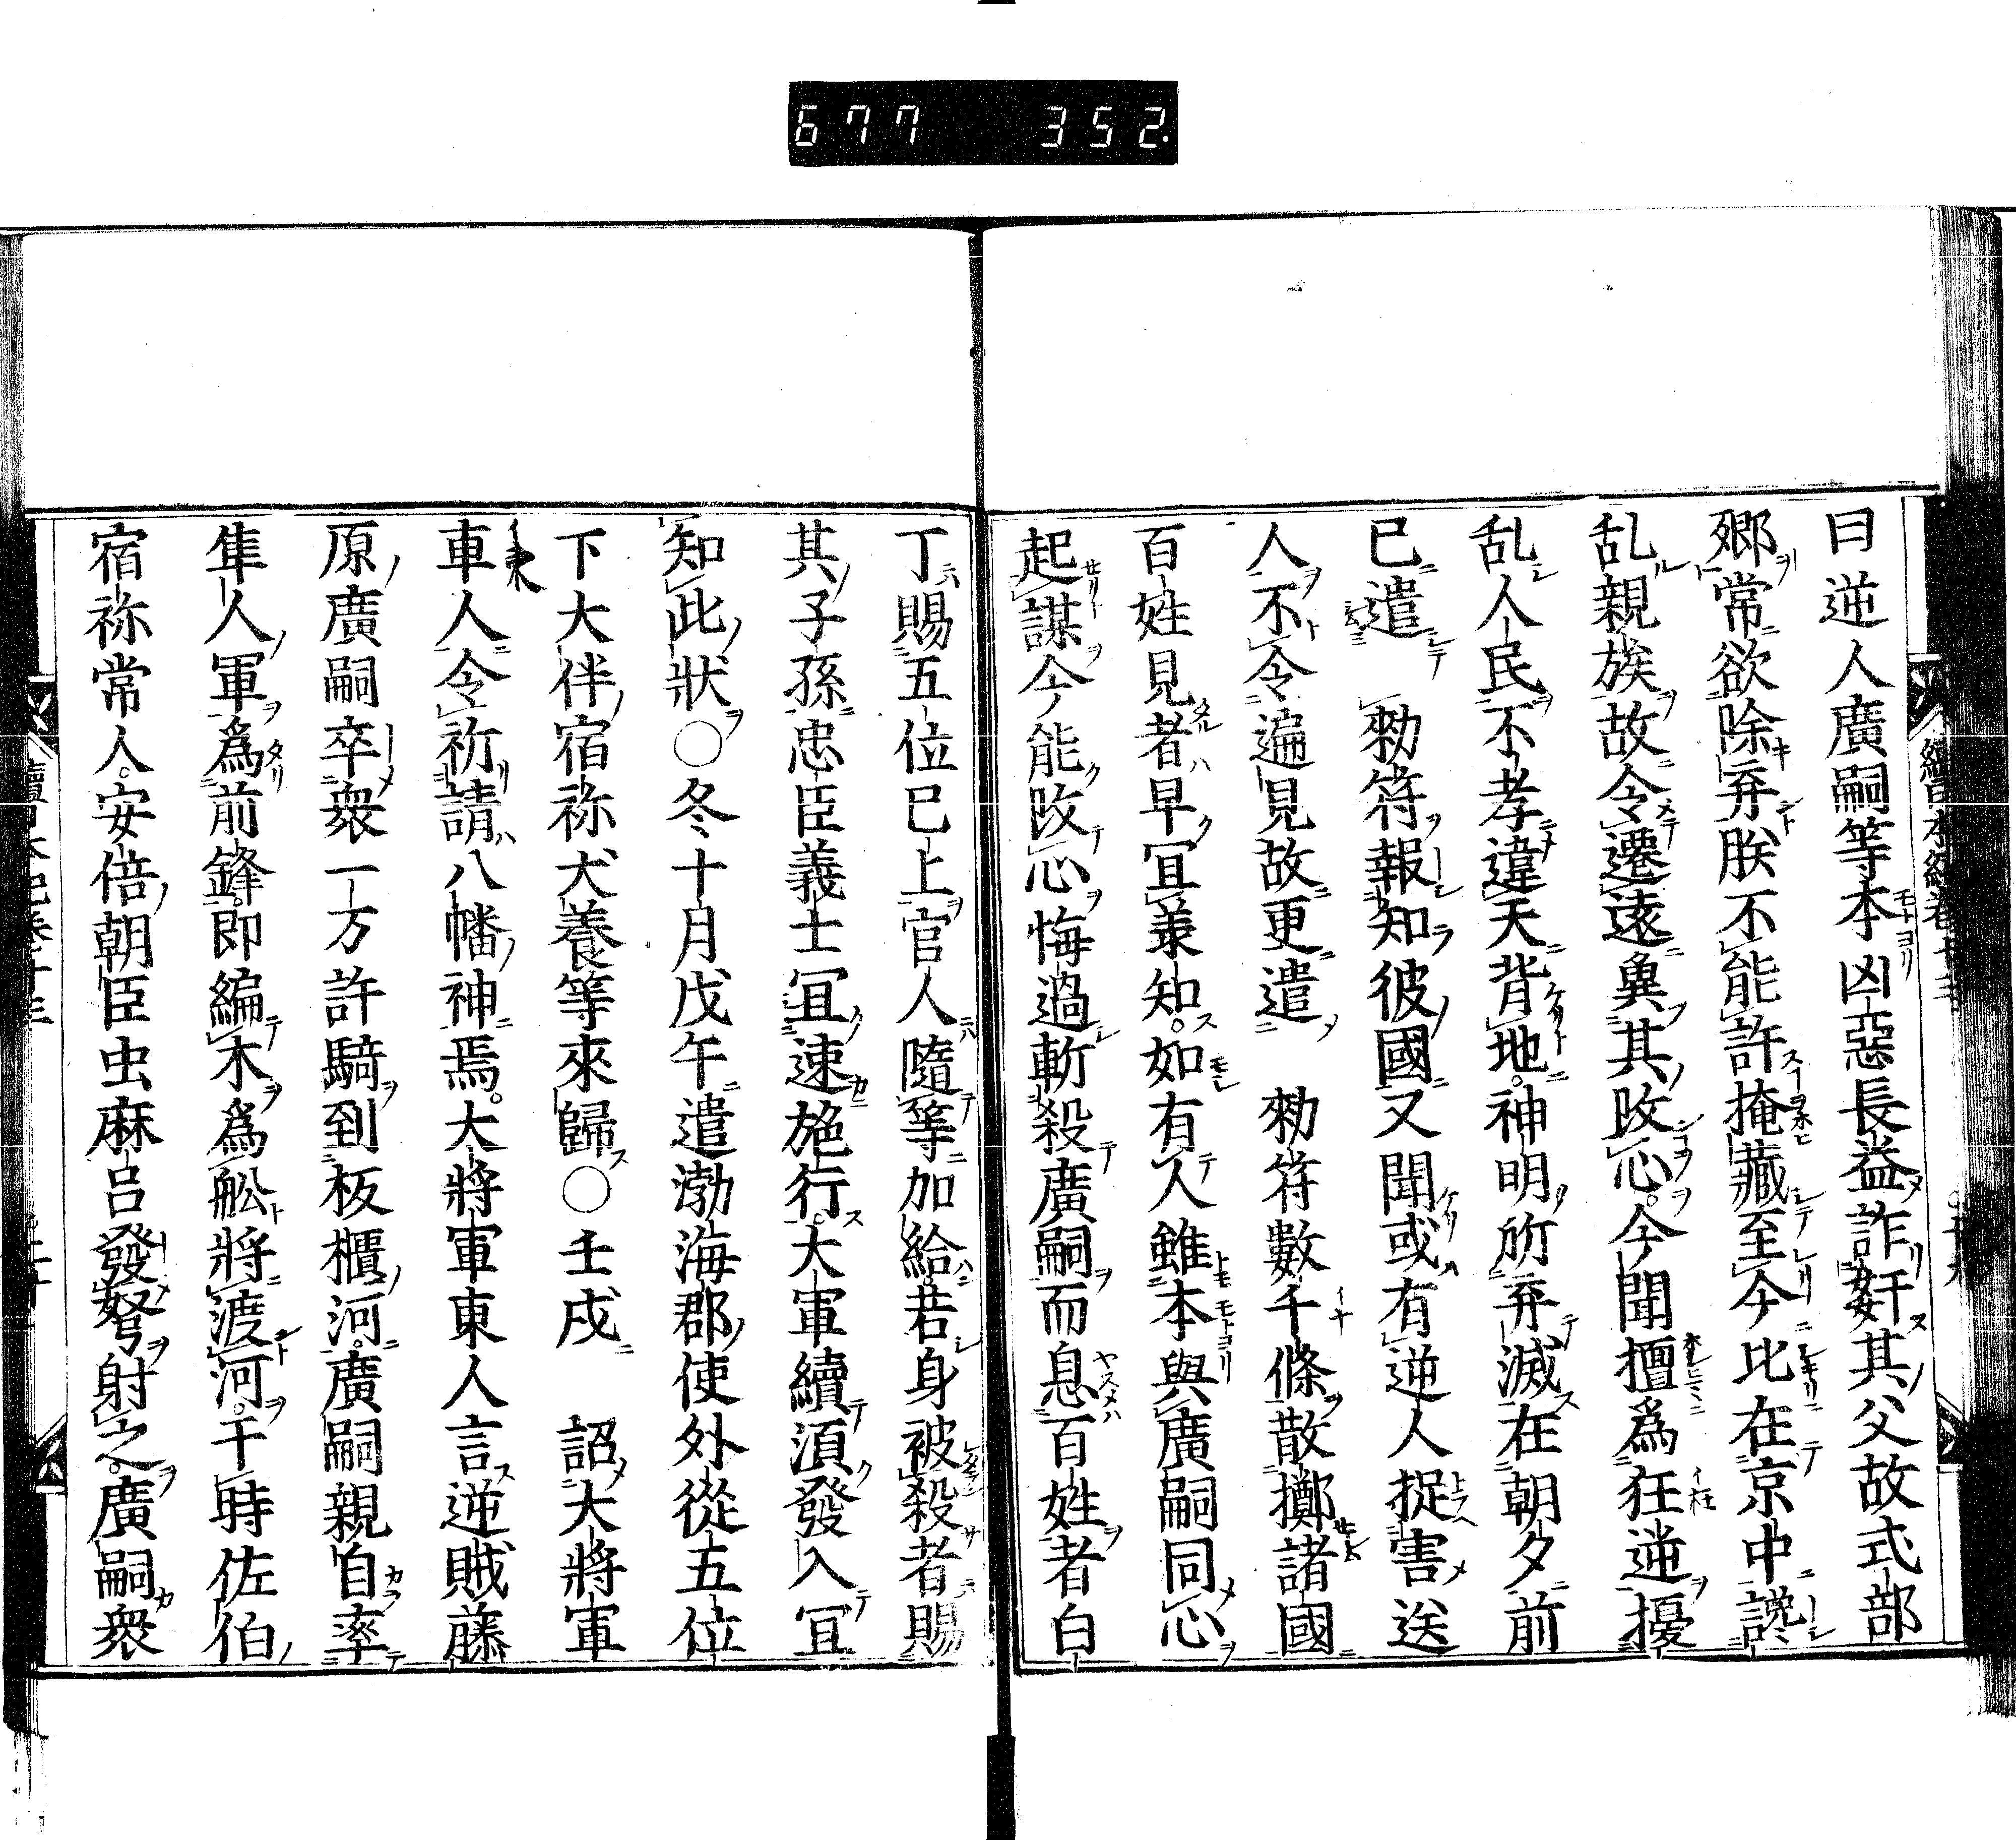 677 352.
曰逆人廣嗣等本凶惡長益詐奸其父故式部
郷常欲除弃朕不能許掩藏至今比在京中讒
乱親族故令遷遠冀其改心今聞擅為狂逆擾
乱人民不孝違天背地。神明所弃滅在朝夕前
已遣 勑符報知彼國又聞或有逆人捉害送
人不令遍見故更遣 勑符數千條散擲諸國
百姓見者早宜兼知。如有人雖本與廣嗣同心
起謀今能改心悔過斬殺廣嗣而息百姓者白
丁賜五位已上官人隨等加給。若身被殺者賜
其子孫忠臣義士宜速施行。大軍續湏發入宜
知此狀○冬十月戊午遣渤海郡使外從五位
下大伴宿祢犬養等來歸○壬戌 詔大將軍
車人令祈請八幡神焉。大將軍東人言逆賊藤
原廣嗣卒衆一万許騎到板櫃河。廣嗣親自率
隼人軍為前鋒。即編木爲舩將渡河。于時佐伯
宿祢常人。安倍朝臣虫麻呂發弩射之。廣嗣衆